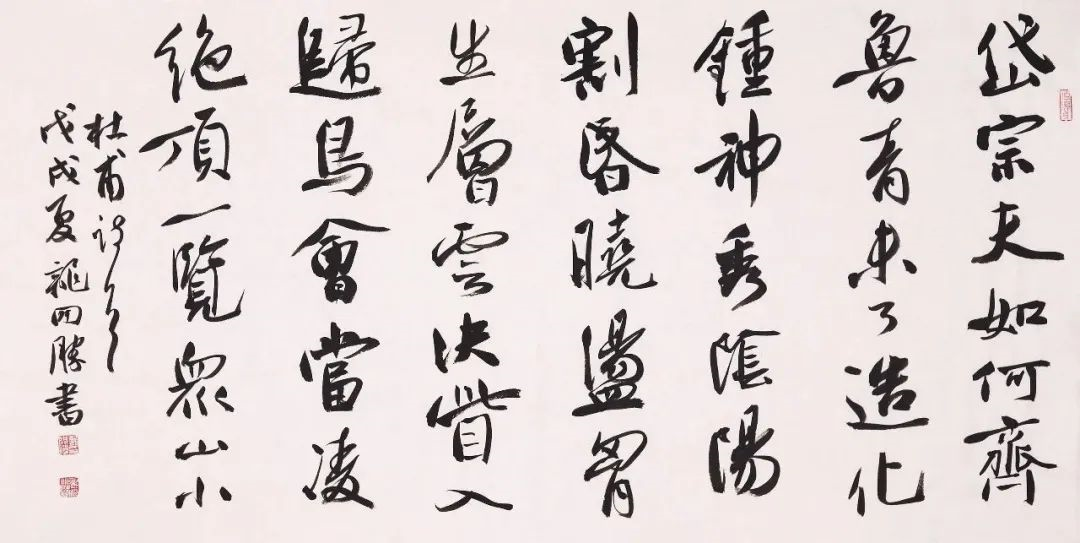 岱宗夫如何齊
魯青未了造化
鍾神秀陰陽
割昏曉盪胷
生層雲決眥入
歸鳥會當凌
絕頂一覽眾山小
杜甫詩
戊戌夏龍四勝書